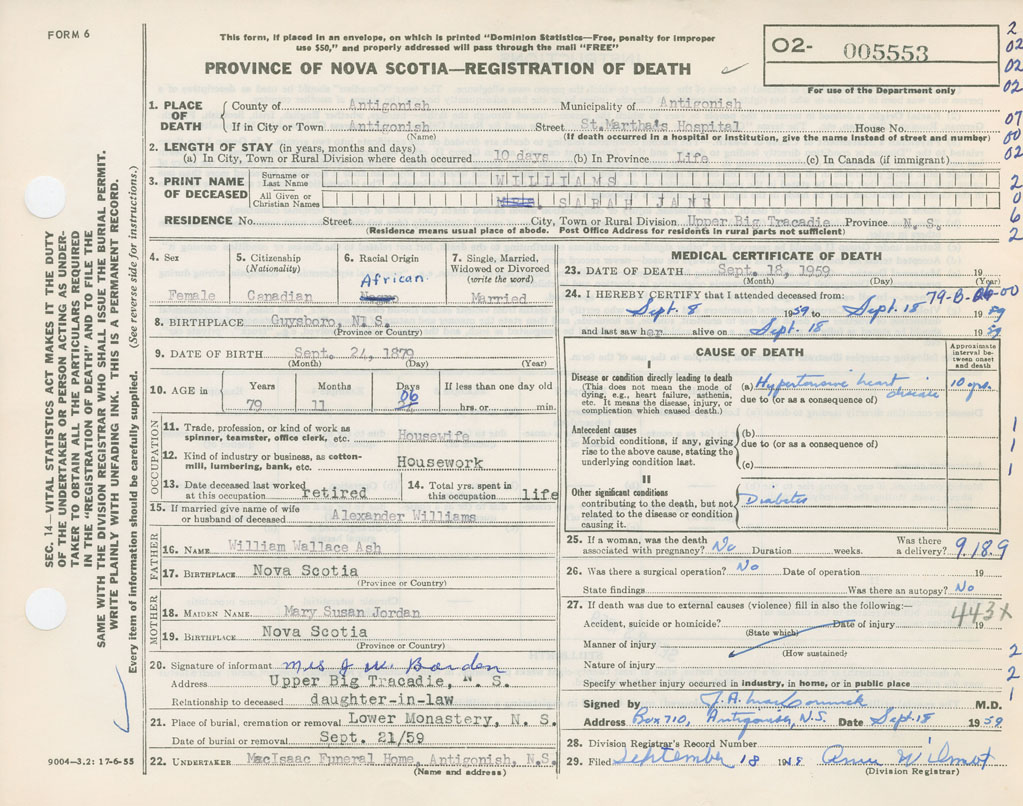 FORM 6
This form, if placed in an envelope, on which is printed "Dominion Statistics—Free, penalty for improper
use $50," and properly addressed will pass through the mail "FREE"
PROVINCE OF NOVA SCOTIA—REGISTRATION OF DEATH
02- 005553
For use of the Department only
2
02
02
02
07
00
02
2
0
6
2
1. PLACE OF DEATH
County of Antigonish Municipality of Antigonish
If in City or Town Antigonish Street St.Martha's Hospital House No.
(Name) (If death occurred in a hospital or institution, give the name instead of street and number)
2. LENGTH OF STAY (in years, months and days)
(a) In City, Town or Rural Division where death occurred 10 days (b) In Province Life (c) In Canada (if immigrant)
3. PRINT NAME OF DECEASED
Surname or Last Name WILLIAMS
All Given or Christian Names SARAH JANE
RESIDENCE No. Street City, Town or Rural Division Upper Big Tracadie Province N. S.
(Residence means usual place of abode. Post Office Address for residents in rural parts not sufficient)
4. Sex
Female
5. Citizenship
(Nationality)
Canadian
6. Racial Origin
African
Negro
7. Single, Married,
Widowed or Divorced
(write the word)
Married
8. BIRTHPLACE Guysboro, N. S.
(Province or Country)
9. DATE OF BIRTH Sept. 24, 1879
(Month) (Day) (Year)
10. AGE in
Years Months Days If less than one day old
79 11 hrs. or min.
OCCUPATION
11. Trade, profession, or kind of work as
spinner, teamster, office clerk, etc. Housewife
12. Kind of industry or business, as cotton-
mill, lumbering, bank, etc. Housework
13. Date deceased last worked
at this occupation retired
14. Total yrs. spent in
this occupation life
15. If married give name of wife
or husband of deceased Alexander Williams
FATHER
16. NAME William Wallace Ash
17. BIRTHPLACE Nova Scotia
(Province or Country)
MOTHER
18. MAIDEN NAME Mary Susan Jordan
19. BIRTHPLACE Nova Scotia
(Province or Country)
20. Signature of informant Mrs J W Borden
Address Upper Big Tracadie, N. S.
Relationship to deceased daughter-in-law
21. Place of burial, cremation or removal Lower Monastery, N. S.
Date of burial or removal Sept. 21/59
22. UNDERTAKER MacIsaac Funeral Home, Antigonish, N.S.
(Name and address)
MEDICAL CERTIFICATE OF DEATH
23. DATE OF DEATH Sept. 18, 1959 19
(Month) (Day) (Year)
24. I HEREBY CERTIFY that I attended deceased from: 79-B-06-00
Sept. 8 1959 to Sept. 18 1959
and last saw her alive on Sept. 18 1959
CAUSE OF DEATH
Approximate
interval be-
tween onset
and death
I
Disease or condition directly leading to death
(This does not mean the mode of
dying, e.g., heart failure, asthenia,
etc. It means the disease, injury, or
complication which caused death.)
(a) Hypertensive heart disease 10 yrs.
due to (or as a consequence of)
Antecedent causes
Morbid conditions, if any, giving
rise to the above cause, stating the
underlying condition last.
(b)
due to (or as a consequence of)
(c)
1
1
1
II
Other significant conditions
contributing to the death, but not
related to the disease or condition
causing it.
Diabetes
25. If a woman, was the death
associated with pregnancy? No Duration weeks. Was there
a delivery? 9.18.9
26. Was there a surgical operation? No Date of operation 19
State findings Was there an autopsy? No
27. If death was due to external causes (violence) fill in also the following:— 443X
Accident, suicide or homicide? Date of injury 19
(State which)
Manner of injury
(How sustained)
Nature of injury
Specify whether injury occurred in industry, in home, or in public place
2
2
1
Signed by J. A. MacCormick M.D.
Address Box 710, Antigonish, N.S. Date Sept. 18 1959
28. Division Registrar's Record Number
29. Filed September 18 19
(Division Registrar)
SEC. 14—VITAL STATISTICS ACT MAKES IT THE DUTY
OF THE UNDERTAKER OR PERSON ACTING AS UNDER-
TAKER TO OBTAIN ALL THE PARTICULARS REQUIRED
IN THE "REGISTRATION OF DEATH" AND TO FILE THE
SAME WITH THE DIVISION REGISTRAR WHO SHALL ISSUE THE BURIAL PERMIT.
WRITE PLAINLY WITH UNFADING INK. THIS IS A PERMANENT RECORD.
Every item of information should be carefully supplied. (See reverse side for instructions.)
9004—3.2: 17-6-55